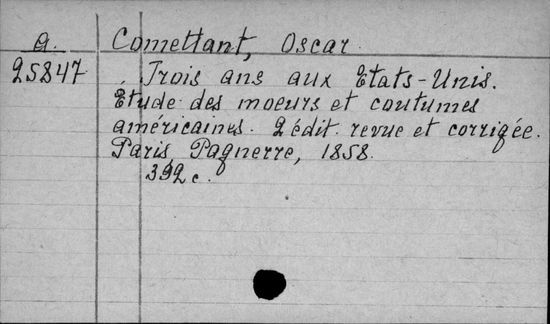 a. Comettant, Oscar.
25847 Trois ans aux Etats-Unis.
Etude des moeurs et coutumes
américaines. 2 édit. revue et corrigée.
Paris, Pagnerre, 1858.
392 c.